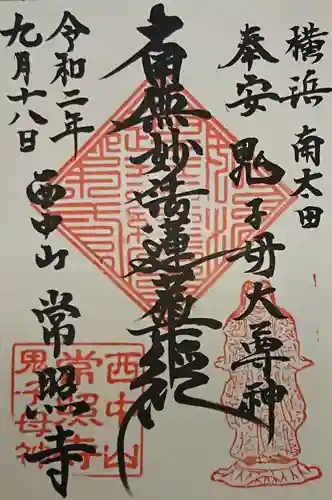 横浜 南太田
奉安 鬼子母大尊神
南無妙法蓮華経
令和二年
九月十八日
西中山 常照寺
西中山
常照寺
鬼子母神